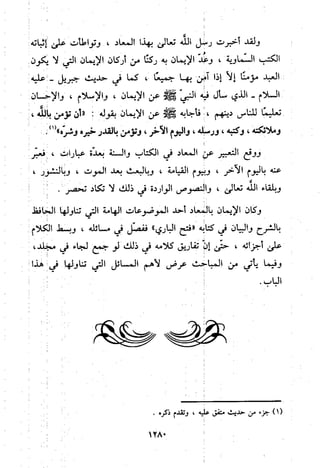 ولقد أخبرت رسل الله تعالى بهذا المعاد ، وتواطأت على إثباته
الكتب السماوية ، وعُدَّ الإيمان به ركنًا من أركان الإيمان التي لا يكون
العبد مؤمنًا إلا إذا آمن بها جميعًا ، كما في حديث جبريل - عليه
السلام - الذي سأل فيه النبيَّ ﷺ عن الإيمان ، والإسلام ، والإحسان
تعليمًا للناس دينهم ، فأجابه ﷺ عن الإيمان بقوله : «أن تؤمن بالله ،
وملائكته ، وكتبه ، ورسله ، واليوم الآخر ، وتؤمن بالقدر خيره وشرِّه»(١).
ووقع التعبير عن المعاد في الكتاب والسنة بعدَّة عبارات ، فعبِّر
عنه باليوم الآخر ، وبيوم القيامة ، وبالبعث بعد الموت ، وبالنشور ،
وبلقاء الله تعالى ، والنصوص الواردة في ذلك لا تكاد تحصر .
وكان الإيمان بالمعاد أحد الموضوعات الهامة التي تناولها الحافظ
بالشرح والبيان في كتابه «فتح الباري» ففصل في مسائله ، وبسط الكلام
على أجزائه ، حتى إنَّ تفاريق كلامه في ذلك لو جمع لجاء في مجلد ،
وفيما يأتي من المباحث عرض لأهم المسائل التي تناولها في هذا
الباب .
(١) جزء من حديث متفق عليه ، وتقدم ذكره .
١٢٨٠